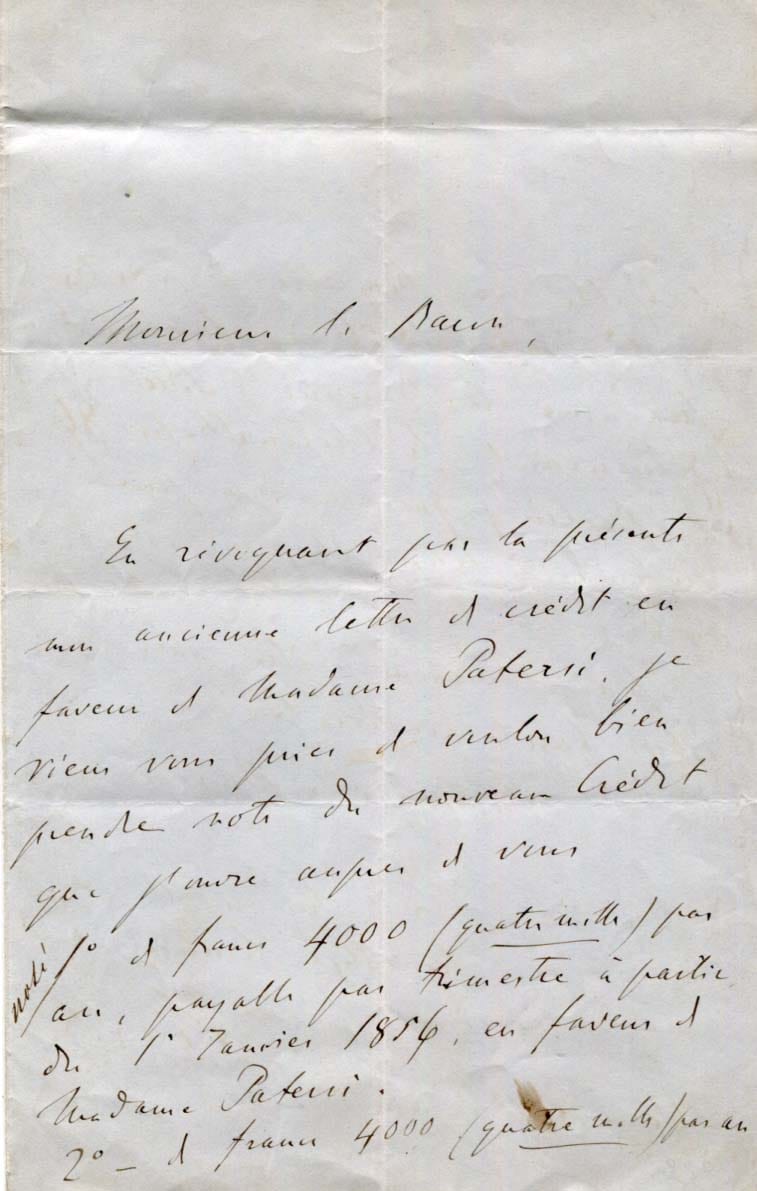 Monsieur le Baron,
En révoquant par la présente
mon ancienne lettre de crédit en
faveur de Madame Patersi, je
viens vous prier de vouloir bien
prendre note du nouveau Crédit
que j'ouvre auprès de vous
1° de francs 4000 (quatre mille) par
noté
an, payable par trimestre à partir
du 1r Janvier 1856, en faveur de
Madame Patersi.
2° – de francs 4000 (quatre mille) par an